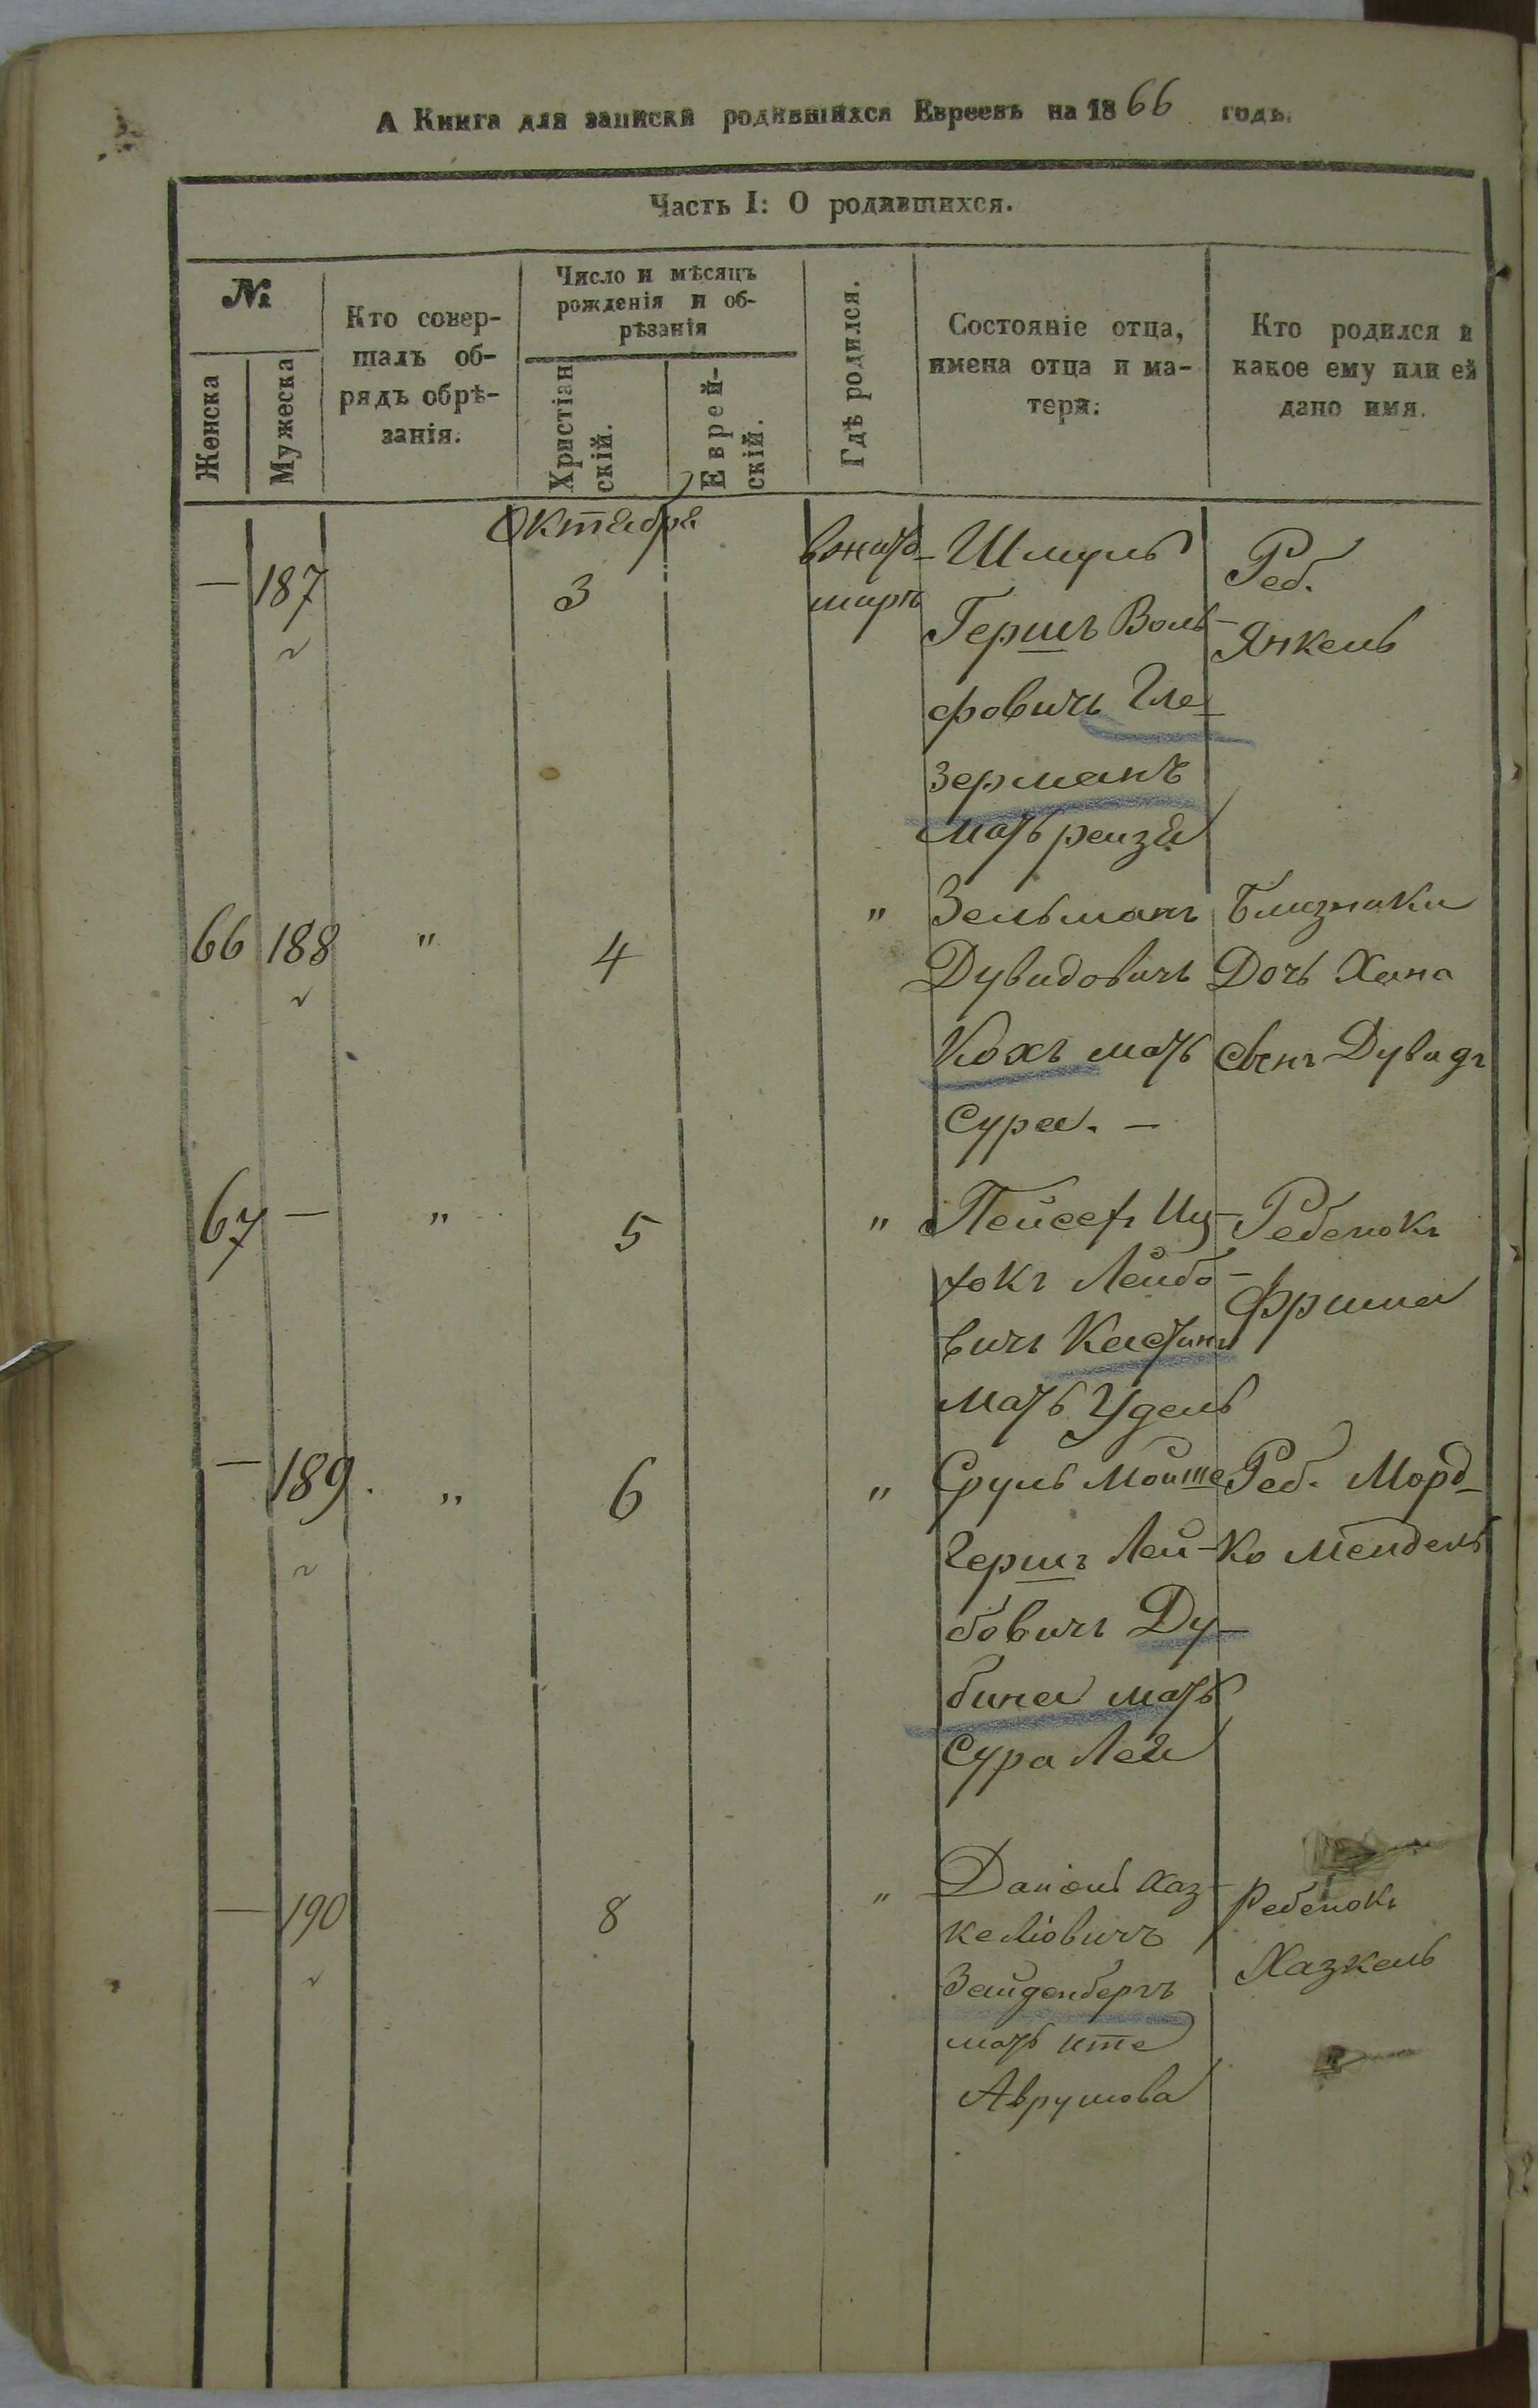 А Книга для записки родившихся Евреевъ на 1866 годъ.
Часть I: О родившихся.
№
Женска
Мужеска
Кто совер-
шалъ об-
рядъ обрѣ-
занія.
Число и мѣсяцъ
рожденія и об-
рѣзанія
Христіан
скій.
Еврей-
скій.
Гдѣ родился.
Состояніе отца,
имена отца и ма-
тери.
Кто родился и
какое ему или ей
дано имя.
Октября
— 187 3
Шмуль
Гершъ Воль-
фовичъ Гле-
зерманъ
мать рейзя
Реб.
Янкель
66 188 " 4 "
Зельманъ
Дувидовичъ
Кохъ мать
Сура. —
Близнаки
Дочь Хана
Сынъ Дувидъ
67 — " 5 "
Пейсехъ Иц-
хокъ Лейбо-
вичъ
мать Удель
Ребенокъ
Фрима
— 189. " 6 "
Сруль Мойше
Гершъ Лей-
бовичъ Ду-
бина мать
Сура Лея
Реб. Морд-
ко Мендель
— 190 8 "
Даніель Хаз-
келіовичъ
Зайденбергъ
мать ите
Аврумова
Ребенокъ
Хазкель